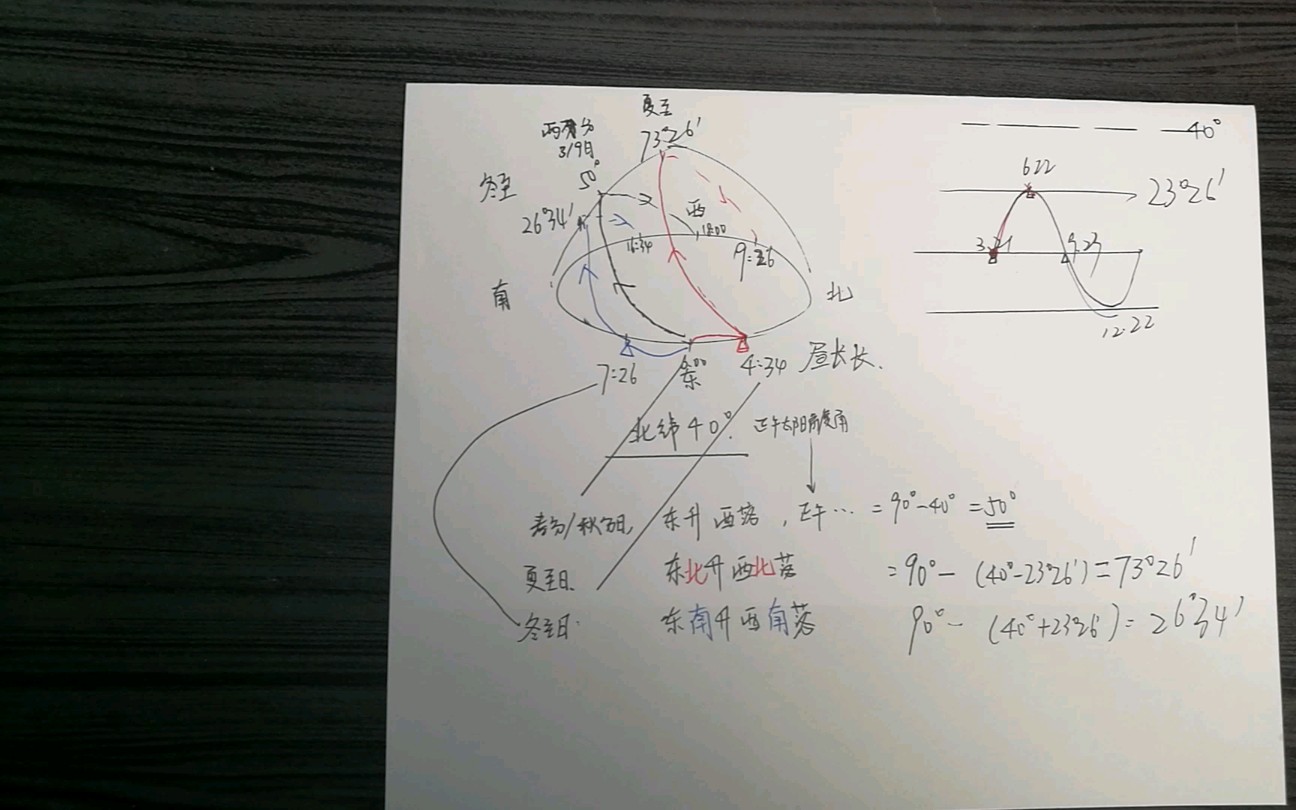 夏至
73°26′
两分
3/9日
50°
冬至
26°34′
西
18:00
16:34
南
北
7:26
6:00
东
4:34 昼长长.
北纬40°. 正午太阳高度角
春分/秋分日, 东升西落, 正午… = 90°-40° = 50°
夏至日. 东北升西北落 = 90° - (40°-23°26′) = 73°26′
冬至日. 东南升西南落 90° - (40°+23°26′) = 26°34′
40°
6.22
23°26′
3.21
9.23
12.22